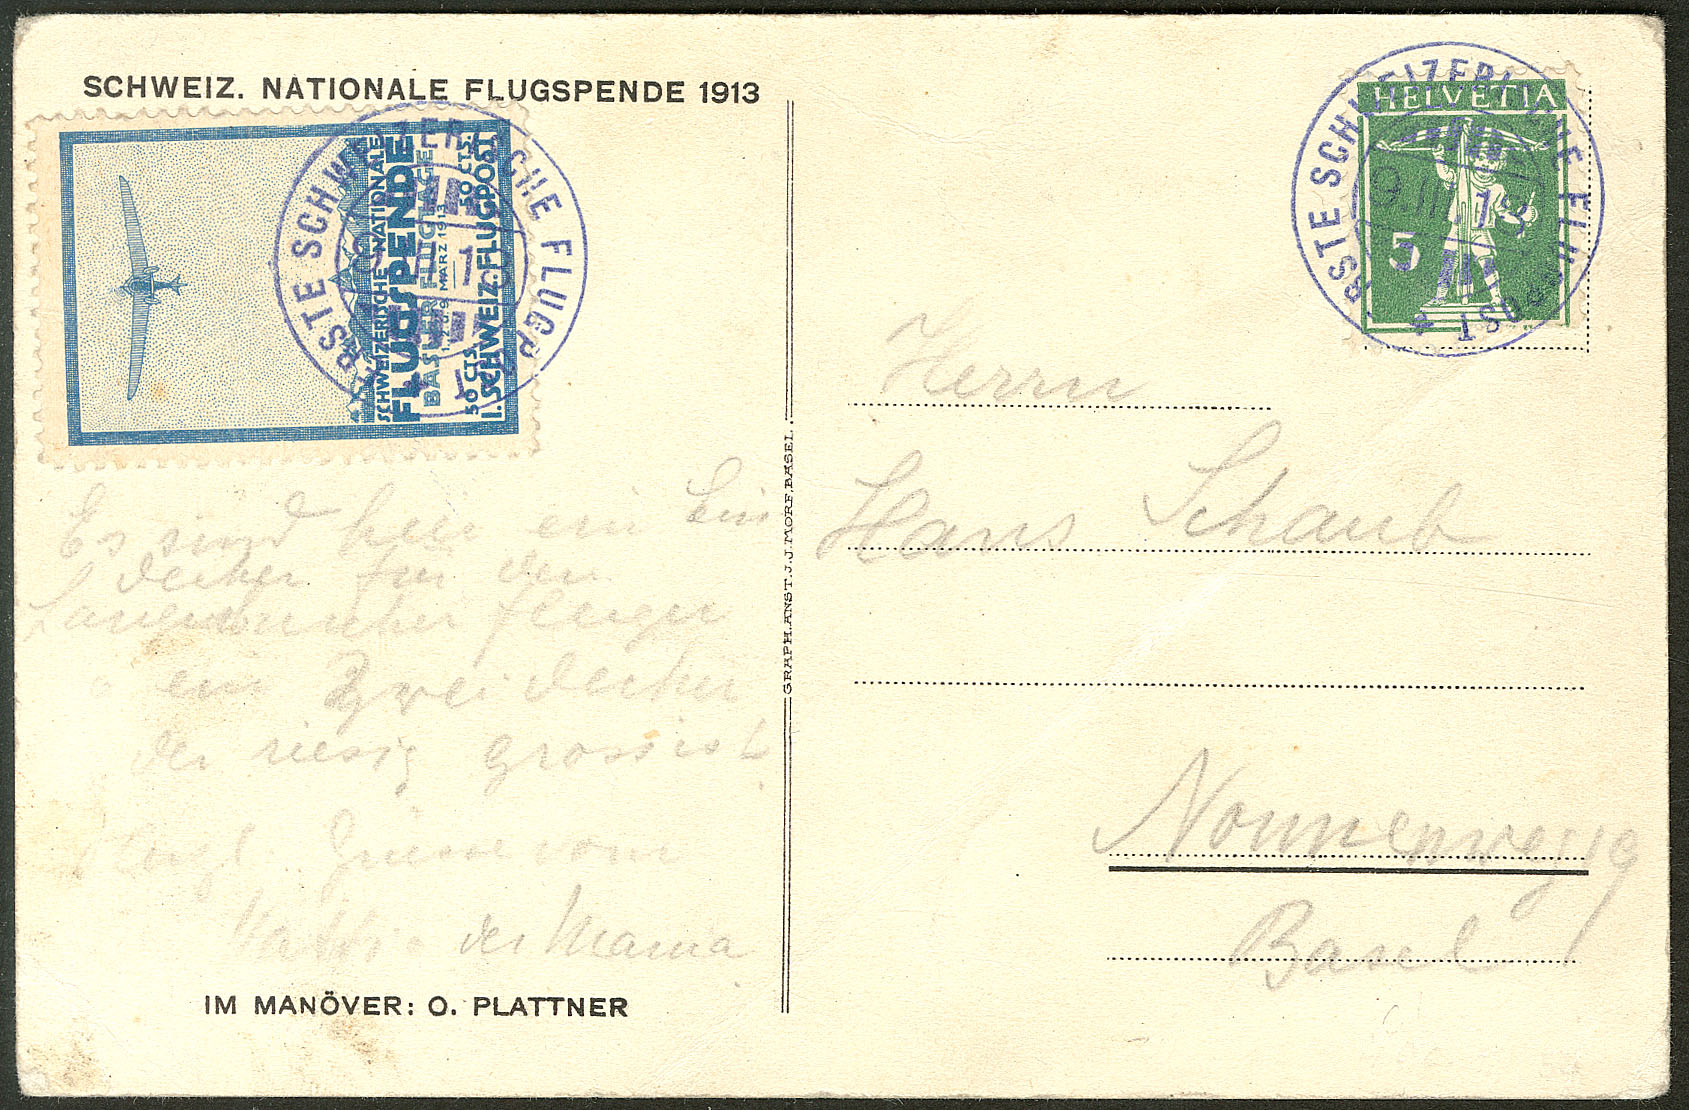 SCHWEIZ. NATIONALE FLUGSPENDE 1913
SCHWEIZERISCHE NATIONALE
FLUGSPENDE
BASLER FLUGTAGE
9. MÄRZ 1913
50 CTS. 50 CTS.
I. SCHWEIZ. FLUGPOST
ERSTE SCHWEIZERISCHE FLUGPOST
HELVETIA
5
ERSTE SCHWEIZERISCHE FLUGPOST
9.III.13
Es sind hier ein Ein
decker für den
Flieger
ein Zweidecker
der riesig gross ist
Grüsse vom
der Mama
IM MANÖVER: O. PLATTNER
GRAPH. ANST. J. J. MORF, BASEL.
Herrn
Hans Schaub
Nonnenweg 19
Basel